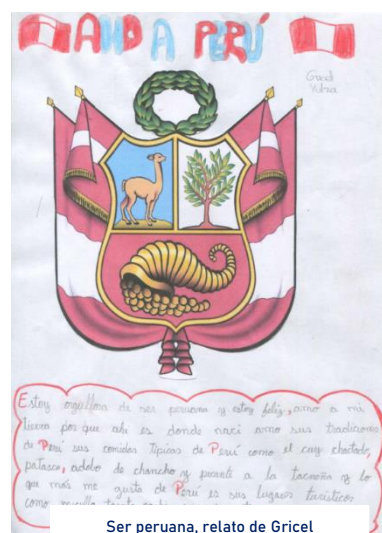 AMO A PERÚ
Estoy orgullosa de ser peruana y estoy feliz, amo a mi
tierra por que ahi es donde naci amo sus tradiciones
de Perú sus comidas tipicas de Perú como el cuy chactado,
patasca, adobo de chancho y picante a la tacneña y lo
que más me gusta de Perú es sus lugares turísticos
como
Ser peruana, relato de Gricel